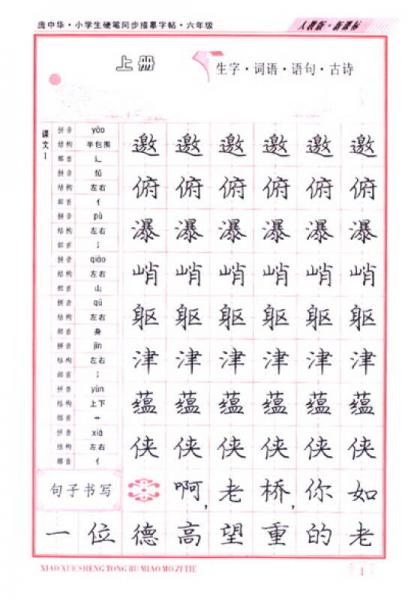 庞中华·小学生硬笔同步描摹字帖·六年级 人教版·新课标
上册 生字·词语·语句·古诗
课文1
拼音 yāo
结构 半包围
部首 辶
邀 邀 邀 邀 邀 邀
拼音 fǔ
结构 左右
部首 亻
俯 俯 俯 俯 俯 俯
拼音 pù
结构 左右
部首 氵
瀑 瀑 瀑 瀑 瀑 瀑
拼音 qiào
结构 左右
部首 山
峭 峭 峭 峭 峭 峭
拼音 qū
结构 左右
部首 身
躯 躯 躯 躯 躯 躯
拼音 jīn
结构 左右
部首 氵
津 津 津 津 津 津
拼音 yùn
结构 上下
部首 艹
蕴 蕴 蕴 蕴 蕴 蕴
拼音 xiá
结构 左右
部首 亻
侠 侠 侠 侠 侠 侠
句子书写 啊,老桥,你如
一位德高望重的老
XIAO XUE SHENG TONG BU MIAO MO ZI TIE 1